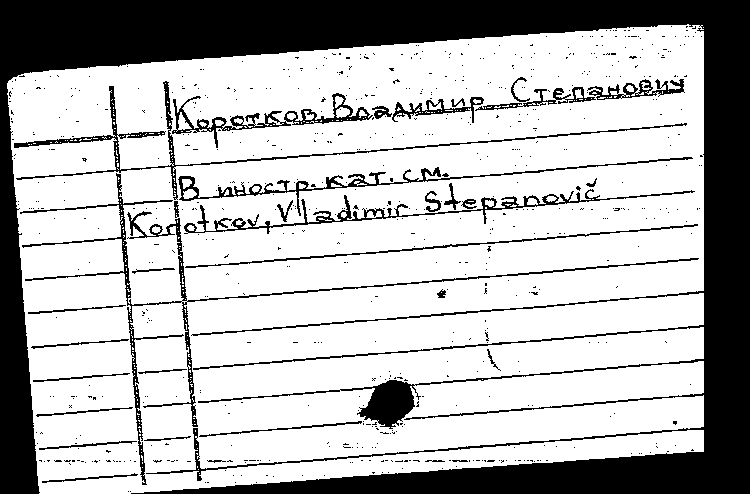 Коротков, Владимир Степанович
В иностр. кат. см.
Korotkov, Vladimir Stepanovič